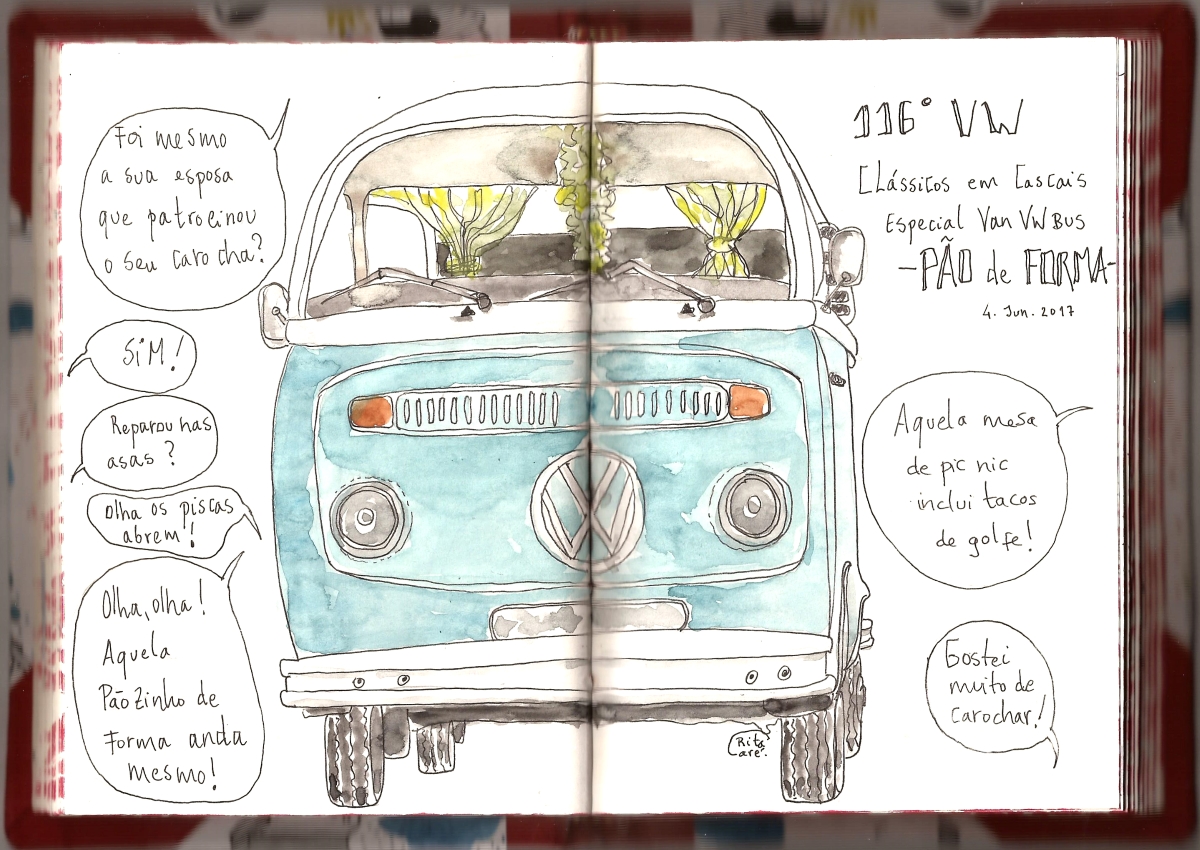 Foi mesmo
a sua esposa
que patrocinou
o seu carocha?
SiM!
Reparou nas
asas?
Olha os piscas
abrem!
Olha, olha!
Aquela
Pãozinho de
Forma anda
mesmo!
116° VW
CLássicos em Cascais
Especial Van VW Bus
-PÃO de FORMA-
4. Jun. 2017
Aquela mesa
de pic nic
inclui tacos
de golfe!
Gostei
muito de
carochar!
Rita
Caré.